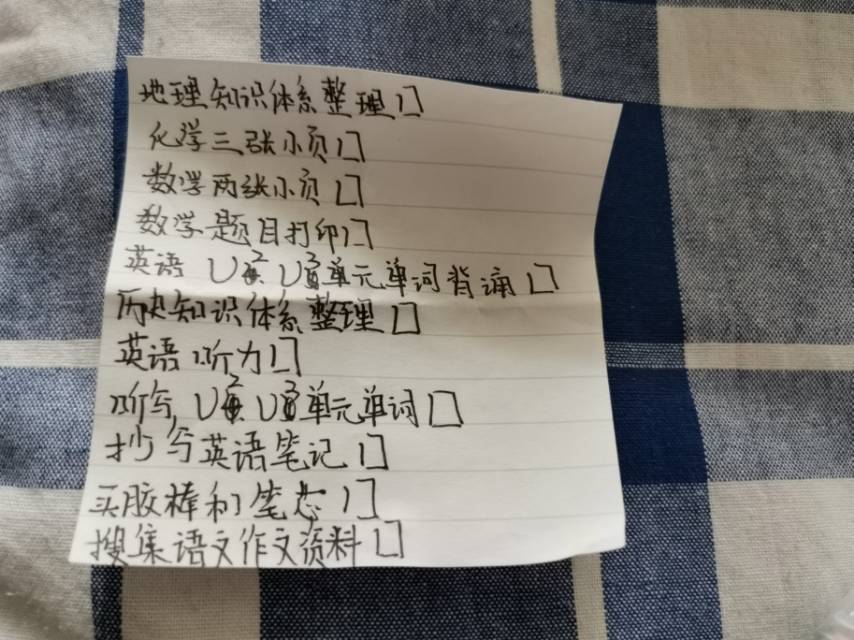 地理知识体系整理□
化学三张小页□
数学两张小页□
数学题目打印□
英语 U2 U3单元单词背诵□
历史知识体系整理□
英语听力□
听写 U2 U3单元单词□
抄写英语笔记□
买胶棒和笔芯□
搜集语文作文资料□